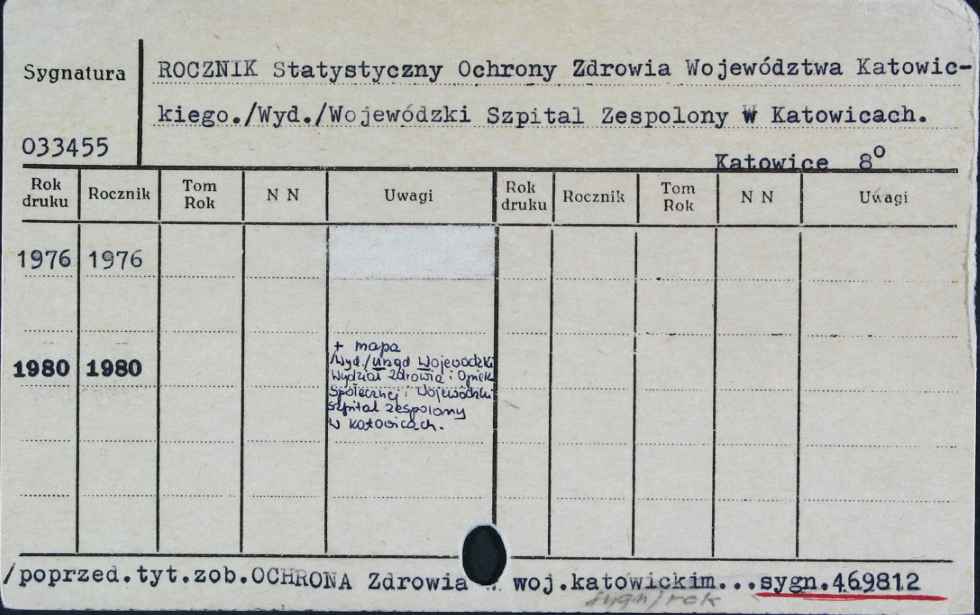 Sygnatura
ROCZNIK Statystyczny Ochrony Zdrowia Województwa Katowic-
kiego./Wyd./Wojewódzki Szpital Zespolony w Katowicach.
033455
Katowice 8°
Rok druku Rocznik Tom Rok N N Uwagi Rok druku Rocznik Tom Rok N N Uwagi
1976 1976
1980 1980
+ mapa
/Wyd./Urząd Wojewódzki
Wydział Zdrowia i Opieki
Społecznej i Wojewódzki
Szpital zespolony
w Katowicach.
/poprzed.tyt.zob.OCHRONA Zdrowia woj.katowickim...sygn.469812